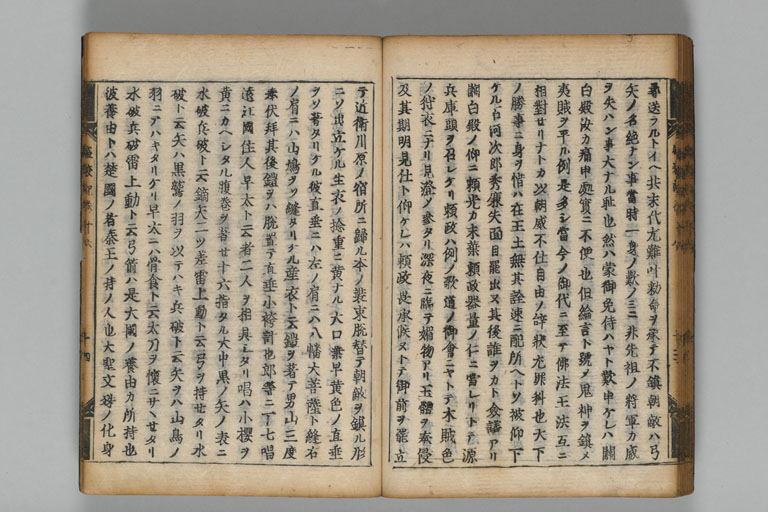 尋送ラルトイヘ共末代尤難叶勅命ヲ承テ不鎮朝敵ハ弓
矢ノ名絶ナン事當時一身ノ歎ノミニ非先祖ノ將軍カ威
ヲ失ハン事大ナル耻也然ハ蒙御免侍ハヤト歎申ケレハ關
白殿汝カ痛申処實ニ不便也但綸言ト號メ鬼神ヲ鎮メ
夷賊ヲ平ル例是多シ當今ノ御代ニ至テ佛法王法互ニ
相對セリナトカ以朝威不仕自由ノ辞釈尤罪科也天下
ノ勝事ニ身ヲ惜ハ在王土無其詮速ニ配所ヘトソ被仰下
ケル石河次郎秀廉失面目罷出又其後誰ヲカト僉議アリ
關白殿ノ仰ニ頼光カ末葉頼政器量ノ仁ニ當レリトテ源
兵庫頭ヲ召レケリ頼政ハ例ノ歌道ノ御會ニヤトテ木賊色
ノ狩衣ニテリ見澁ノ参タリ深夜ニ臨テ媚物アリ玉體ヲ奏侵
及其期明見仕ト仰ケレハ頼政畏承候ヌトテ御前ヲ罷立
テ近衛川原ノ宿所ニ歸ル夲ノ裝束脱替テ朝敵ヲ鎮ル形
ニソ出立ケル生衣ノ捻重ニ黄ナル大口葉早黄色ノ直垂
ヲソ著タリケル彼直垂ニハ左ノ肩ニハ八幡大菩薩ト縫右
ノ肩ニハ山鳩ヲソ縫タリケル産衣ト云鎧ヲ著テ男山三度
奉伏拜其後鎧ヲハ脱置テ直垂小袴計也郎等ニ丁七唱
遠江國住人早太ト云者二人ヲ相具シタリ唱ハ小櫻ヲ
黄ニカヘシタル腹卷ヲ著廿十六指タル大中黒ノ矢ノ表ニ
水破兵破ト云鏑矢二ツ差雷上動ト云弓ヲ持セタリ水
破ト云矢ハ黒鷲ノ羽ヲ以テハキ兵破ト云矢ヲハ山鳥ノ
羽ニテハキタリケリ早太ニハ骨食ト云太刀ヲ懷ニサヽセタリ
水破兵破雷上動ト云弓箭ハ是大國ノ養由カ所持也
彼養由トハ楚國ノ者恭王ノ時ノ人也大聖文殊ノ化身